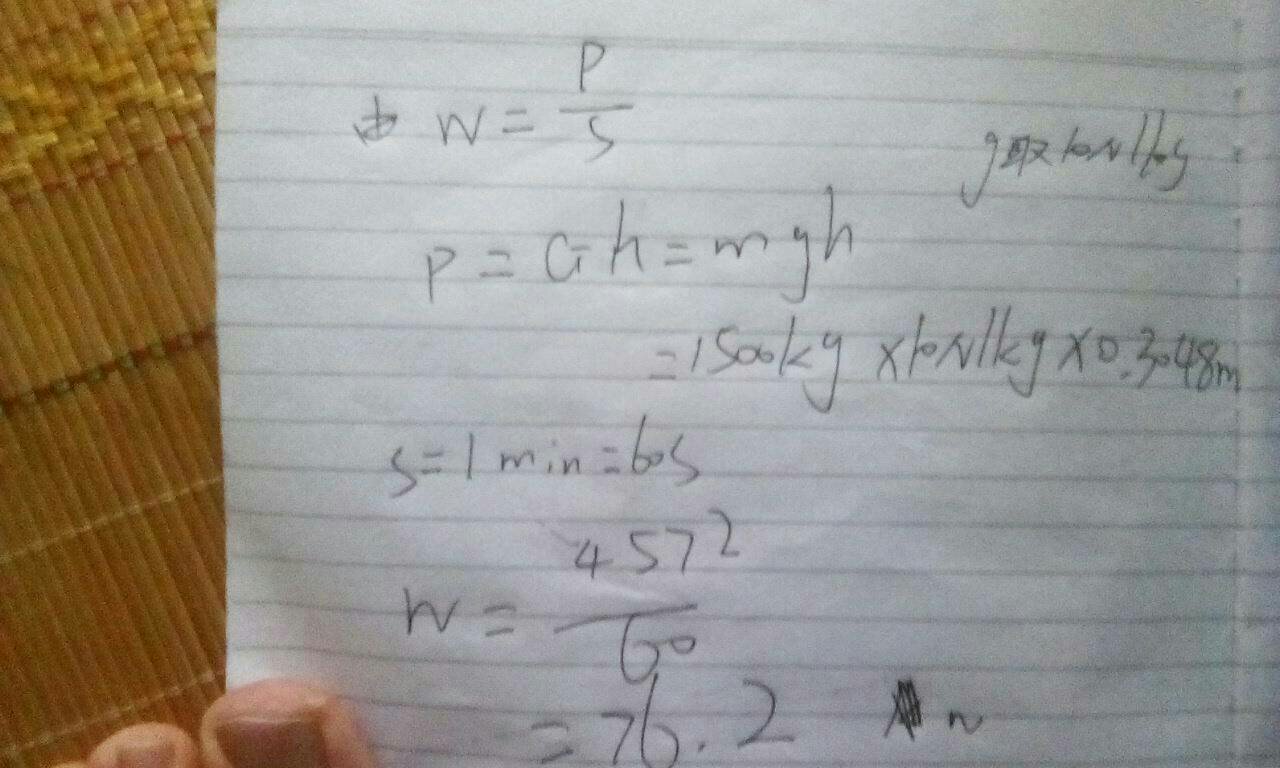 由 W = P/S
g取10N/kg
P = Gh = mgh
=1500kg×10N/kg×0.3048m
S=1min=60S
W = 4572/60
=76.2 w